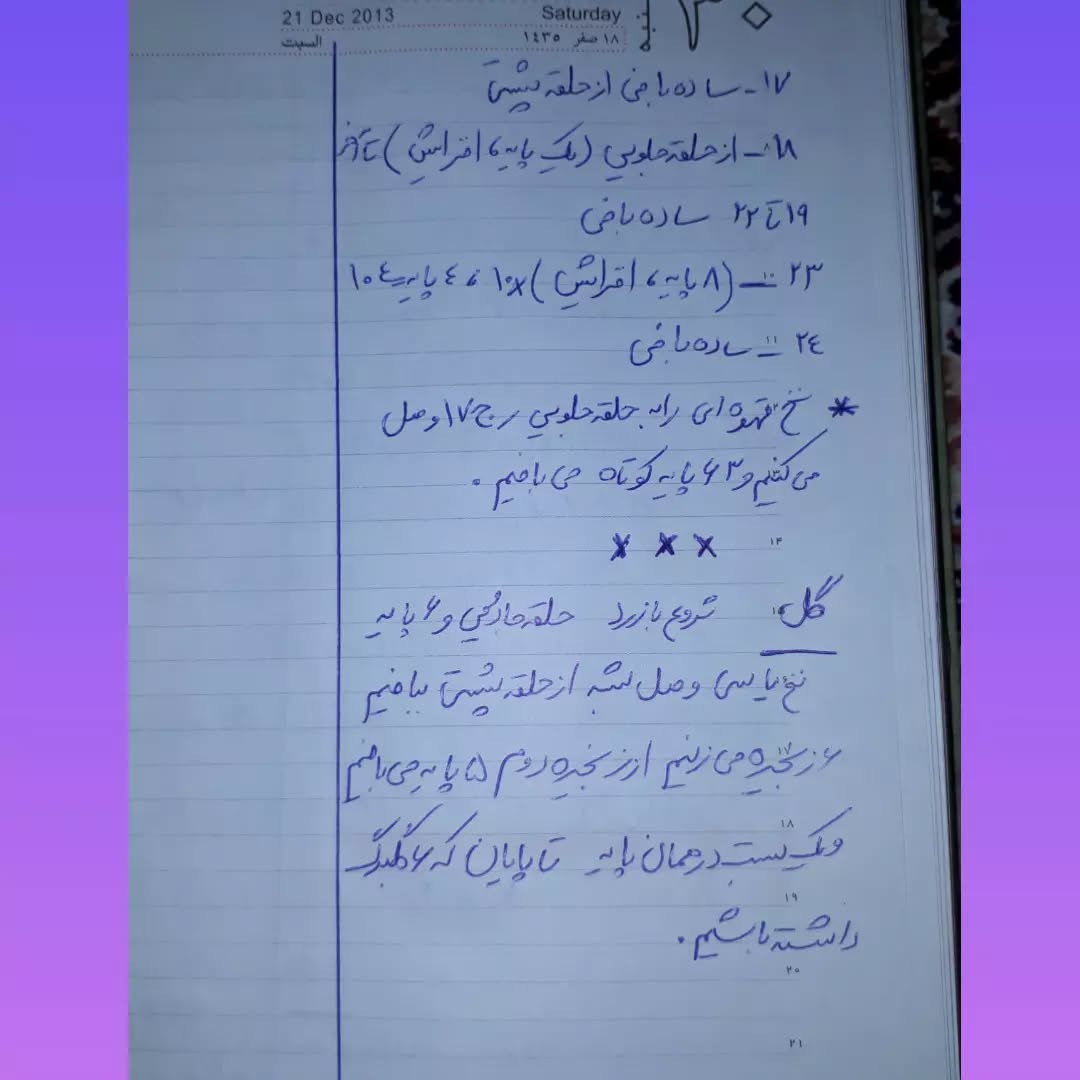 21 Dec 2013 Saturday ۳۰
السبت ١٨ صفر ١٤٣٥
۱۷- ساده بافی از حلقه پشت
۱۸- از حلقه جلویی (یک پایه، افزایش) تا آخر
۱۹ تا ۲۲ ساده بافی
۲۳ - (۸ پایه، افزایش) ×۱۰، ۴ پایه ۱۰۴
۲۴ - ساده بافی
* نخ قهوه ای را به حلقه جلویی رج ۱۷ وصل
می کنیم و ۶۳ پایه کوتاه می بافیم.
۱۳ * * *
گل: شروع با زرد حلقه جادویی و ۶ پایه
نخ یاسی وصل بشه از حلقه پشت ببافیم
۶ زنجیره می زنیم از زنجیره دوم ۵ پایه می بافیم
۱۸
و یک بست در همان پایه تا پایان که ۶ گلبرگ
۱۹
داشته باشیم.
۲۰
۲۱